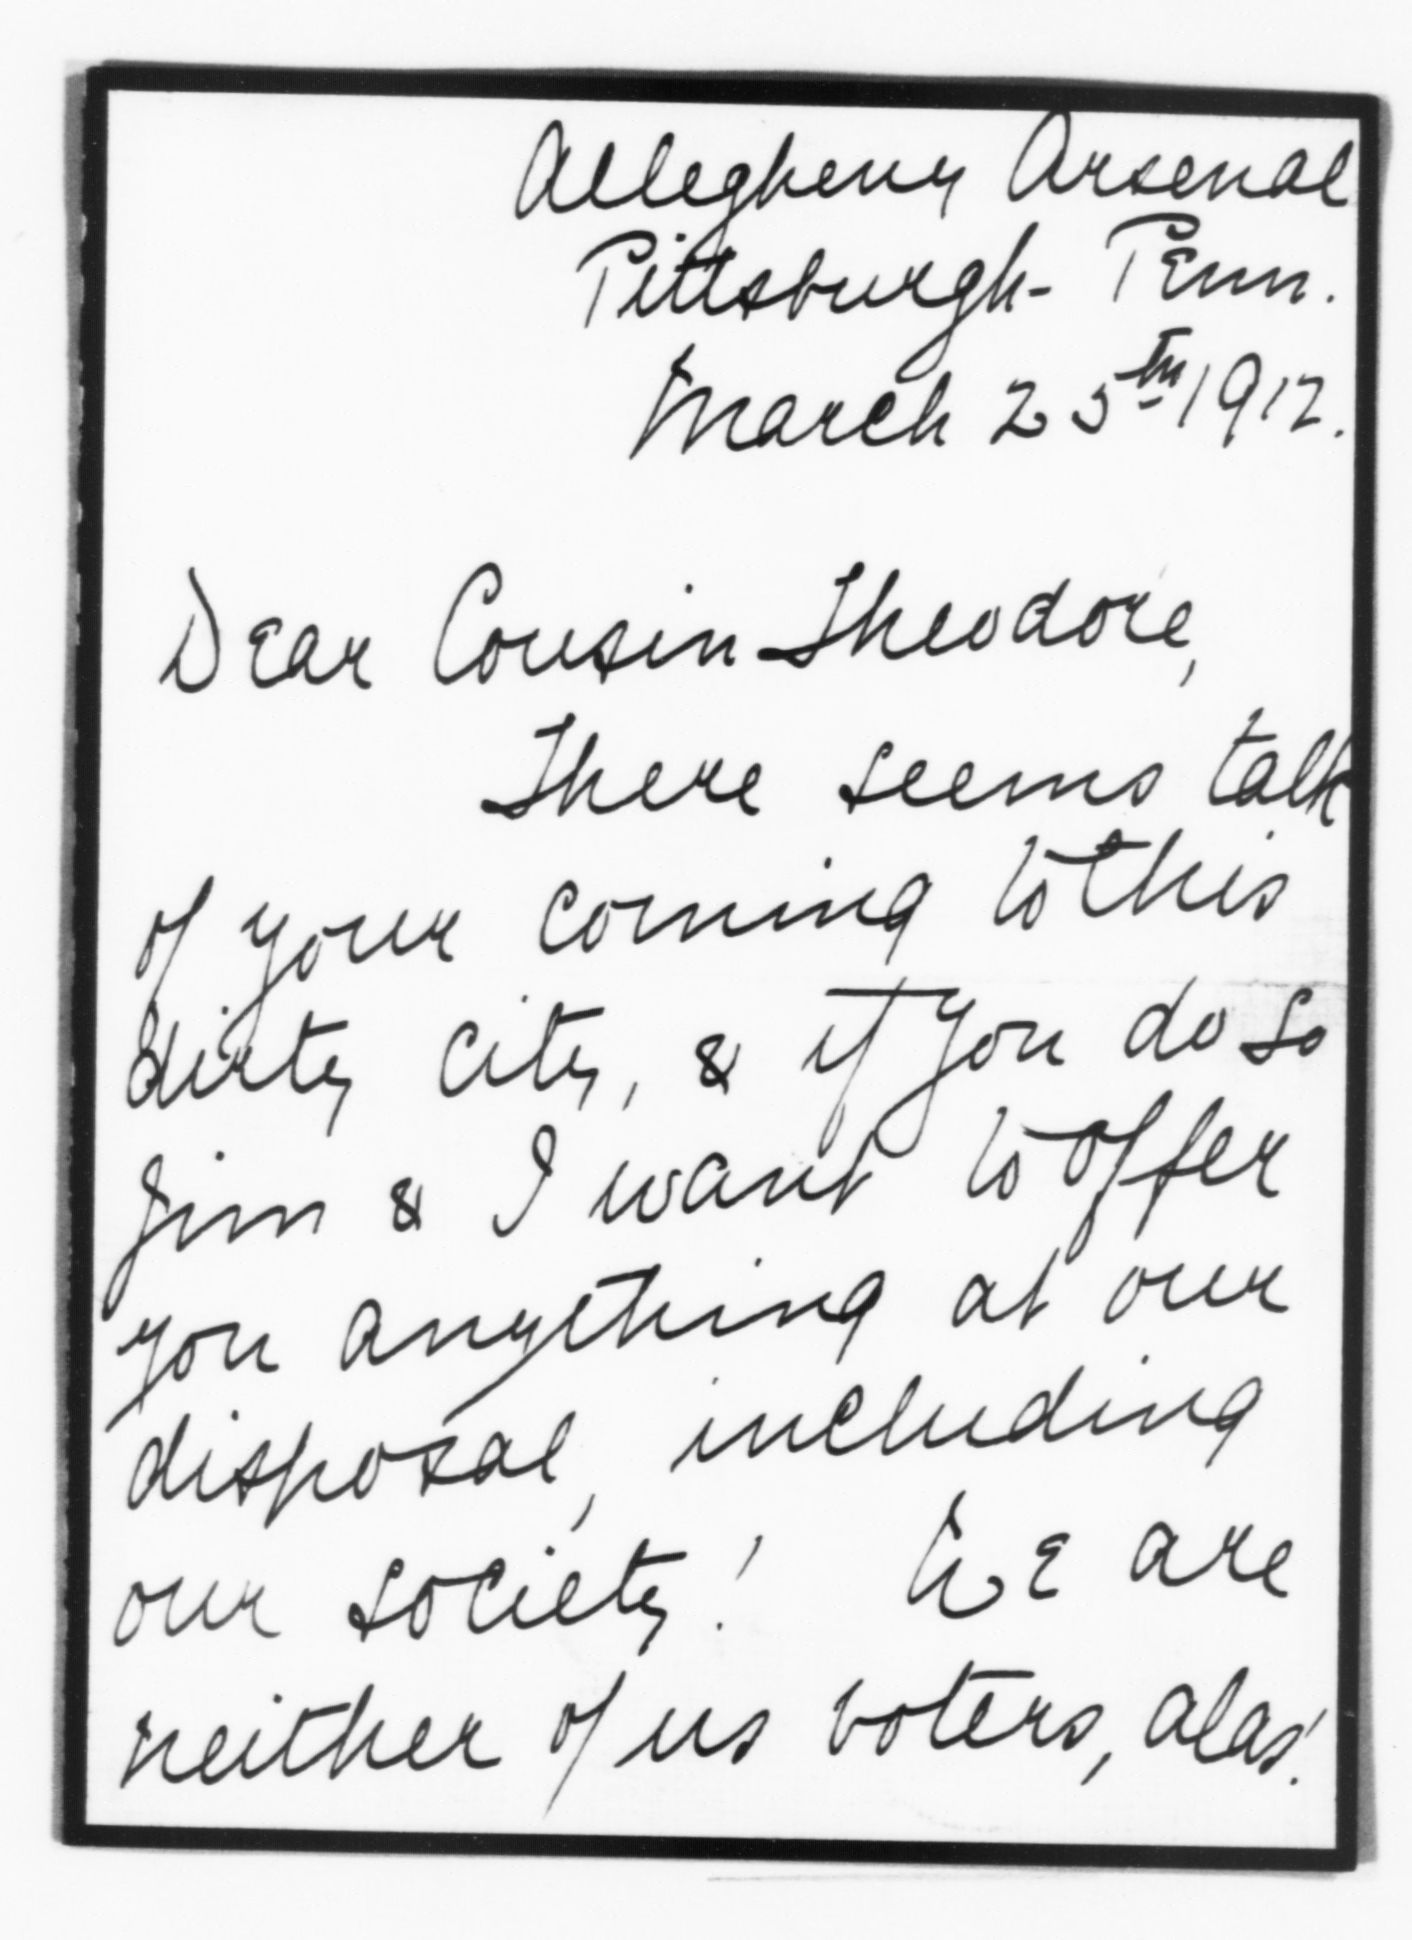 Allegheny Arsenal
Pittsburgh - Penn.
March 25th 1912.
Dear Cousin Theodore,
There seems talk
of your coming to this
dirty city, & if you do so
Jim & I want to offer
you anything at our
disposal, including
our society! We are
neither of us voters, alas!